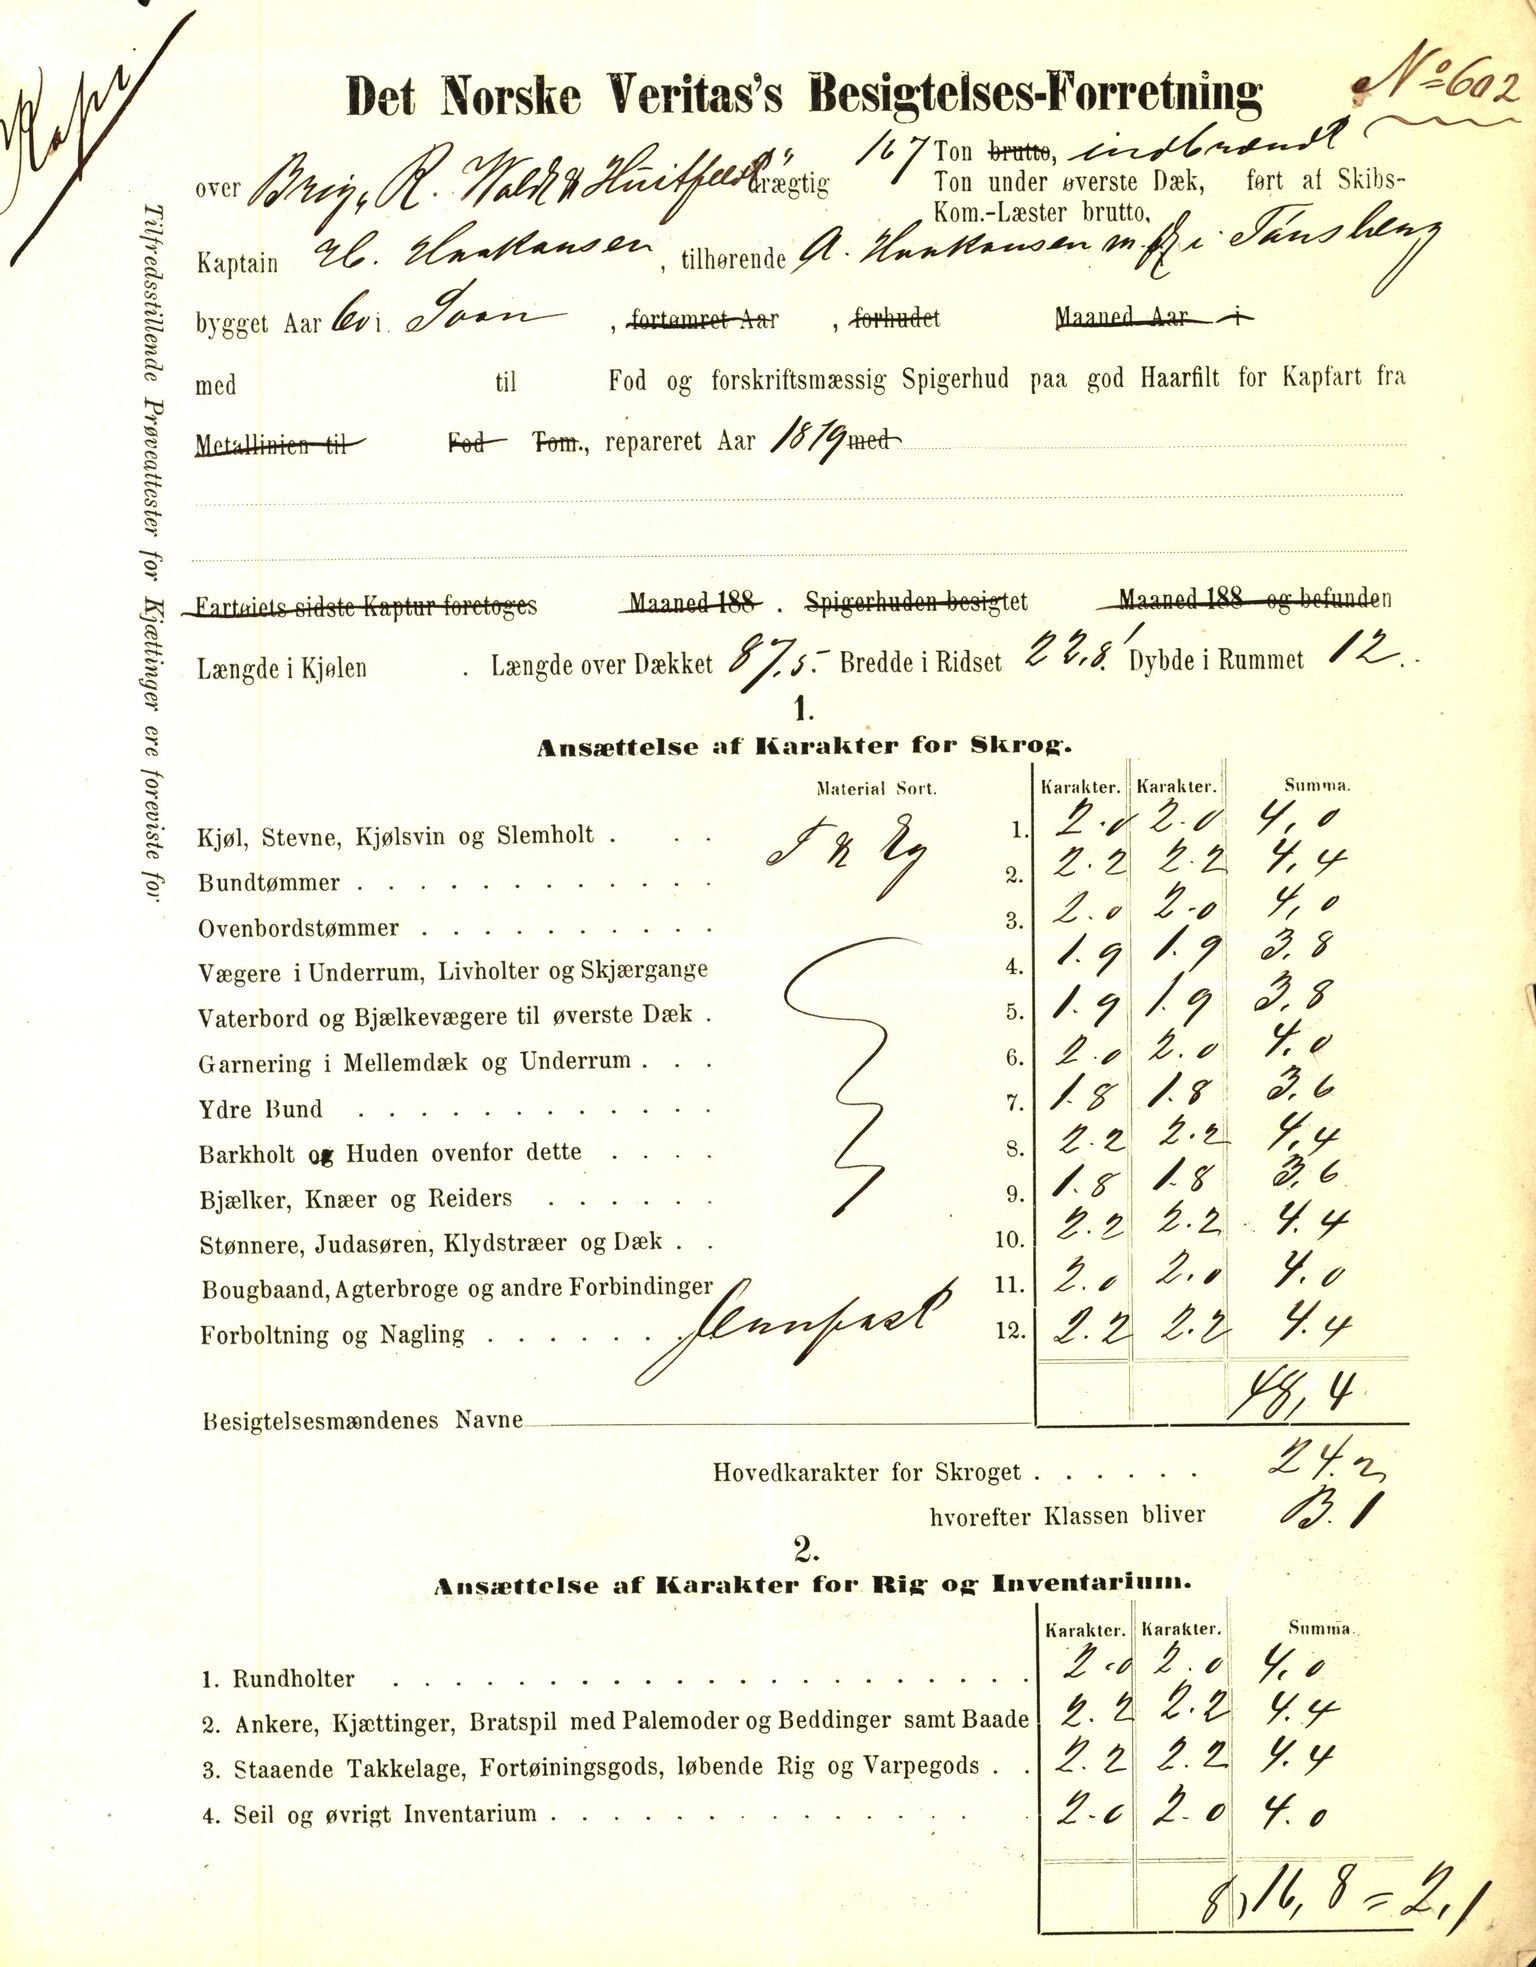 Kopi
Det Norske Veritas's Besigtelses-Forretning
No 602
over Brig „R. Wold & Huitfeldt" drægtig 167 Ton brutto, indbrændt
Ton under øverste Dæk, ført af Skibs-
Kom.-Læster brutto,
Kaptain H. Haakonsen, tilhørende A. Haakonsen m fl i Tønsberg
bygget Aar 60 i Soon, fortømret Aar , forhudet Maaned Aar i
med til Fod og forskriftsmæssig Spigerhud paa god Haarfilt for Kapfart fra
Metallinien til Fod Tom., repareret Aar 1879 med
Fartøiets sidste Kaptur foretoges Maaned 188 . Spigerhuden besigtet Maaned 188 og befunden
Længde i Kjølen . Længde over Dækket 87,5.- Bredde i Ridset 22,8.' Dybde i Rummet 12.
Tilfredsstillende Prøveattester for Kjættinger ere foreviste for
1.
Ansættelse af Karakter for Skrog.
Material Sort. Karakter. Karakter. Summa.
Kjøl, Stevne, Kjølsvin og Slemholt . . . F & Eg 1. 2.0 2.0 4,0
Bundtømmer . . . . . . . . . . . . 2. 2.2 2.2 4,4
Ovenbordstømmer . . . . . . . . . . 3. 2.0 2.0 4,0
Vægere i Underrum, Livholter og Skjærgange 4. 1.9 1.9 3,8
Vaterbord og Bjælkevægere til øverste Dæk . 5. 1.9 1.9 3,8
Garnering i Mellemdæk og Underrum . . . 6. 2.0 2.0 4.0
Ydre Bund . . . . . . . . . . . . 7. 1.8 1.8 3.6
Barkholt og Huden ovenfor dette . . . . 8. 2.2 2.2 4,4
Bjælker, Knæer og Reiders . . . . . . 9. 1.8 1.8 3,6
Stønnere, Judasøren, Klydstræer og Dæk . . 10. 2.2 2.2 4.4
Bougbaand, Agterbroge og andre Forbindinger 11. 2.0 2.0 4.0
Forboltning og Nagling . . . . . . . Jernfast 12. 2.2 2.2 4.4
48,4
Besigtelsesmændenes Navne
Hovedkarakter for Skroget . . . . . . 24.2
hvorefter Klassen bliver B. 1
2.
Ansættelse af Karakter for Rig og Inventarium.
Karakter. Karakter. Summa.
1. Rundholter . . . . . . . . . . . . . . . . 2.0 2.0 4,0
2. Ankere, Kjættinger, Bratspil med Palemoder og Beddinger samt Baade 2.2 2.2 4.4
3. Staaende Takkelage, Fortøiningsgods, løbende Rig og Varpegods . . 2.2 2.2 4.4
4. Seil og øvrigt Inventarium . . . . . . . . . . . . 2.0 2.0 4.0
8) 16,8 = 2,1